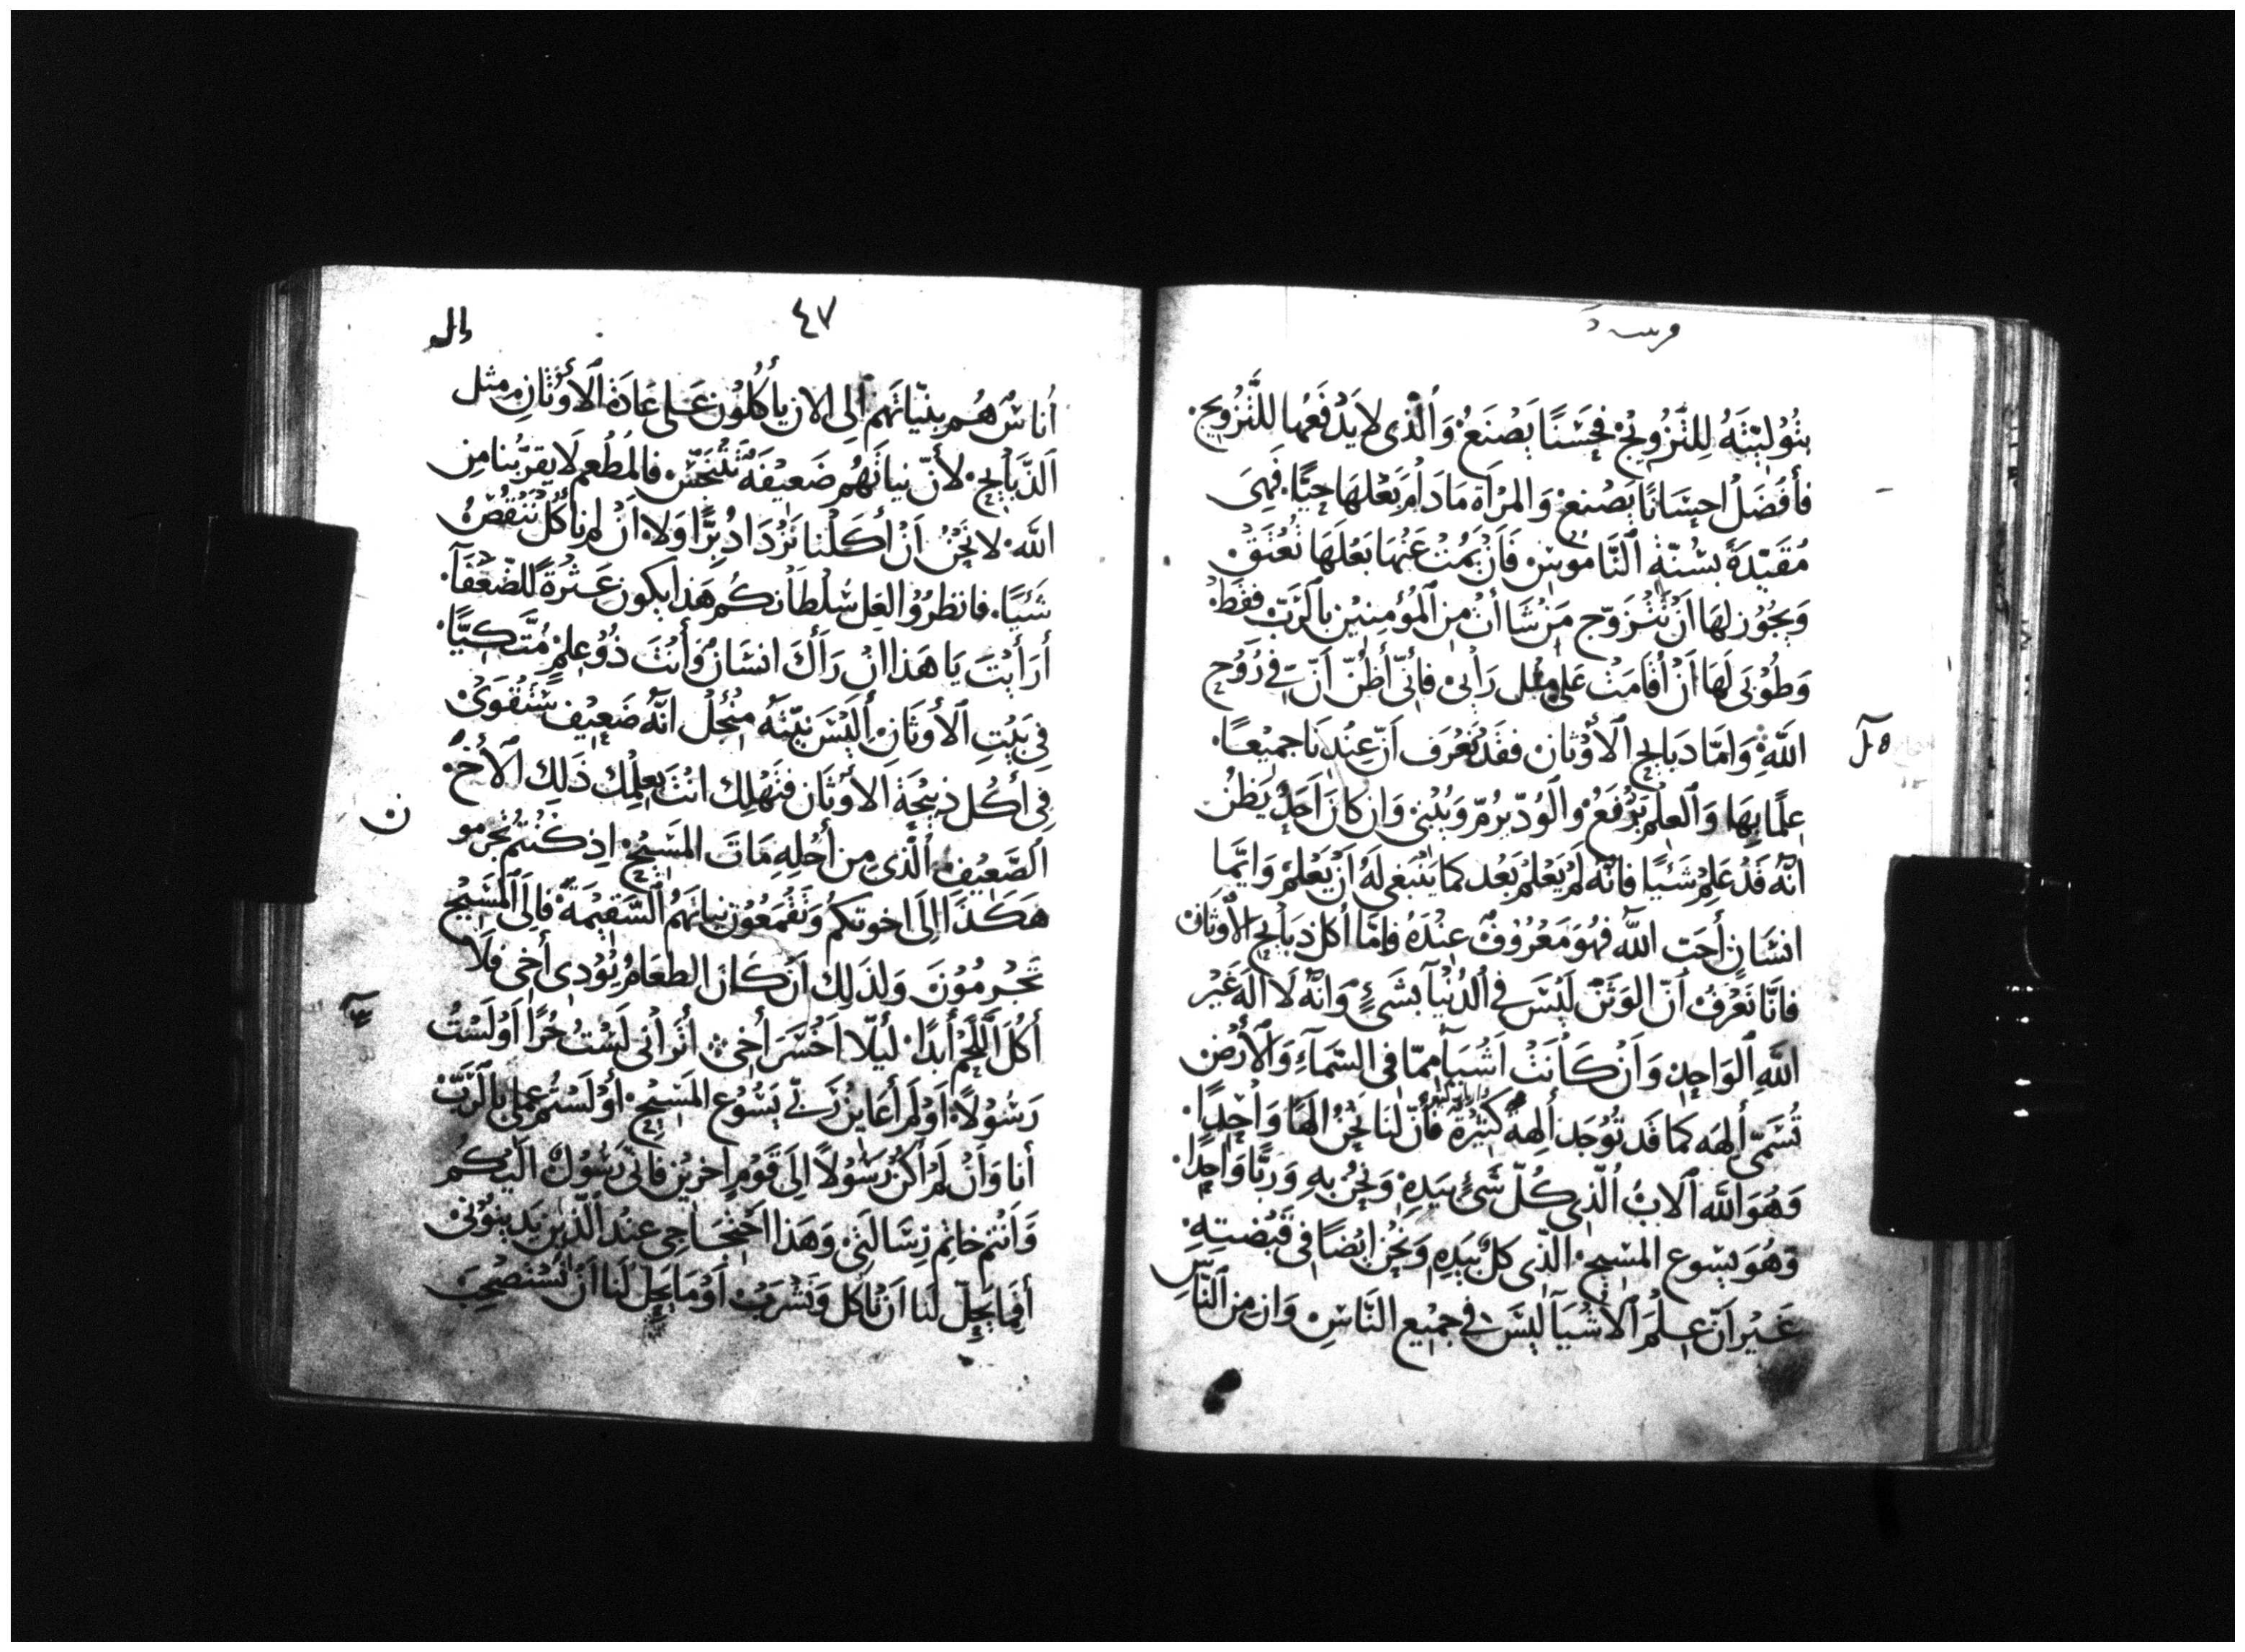 بتُوليّتَهُ لِلتَّزْوِيْج فحَسَنًا يَصْنَعُ وَالَّذى لا يَدْفَعُها للتَّزْوِيج
فأفْضَلُ احِسَانًا يَصْنع وَالمَرْأة مَادَامَ بَعْلهَا حيًّا فَهِىَ
مُقَيّدَة بسُنّة النَّامُوسْ فَانْ يَمُتْ عَنْهَا بَعْلهَا تُعْتَقْ
وَيجُوز لهَا اَنْ تتزَوّج مَنْ شَاأتْ مِن المُؤمِنيْن بالرَّبّ فقطْ
وَطُوْبَى لَهَا انْ اقَامَتْ عَلى مثل رَأيى فانّى أظُنّ اَنّ فِىَّ رُوْح
اللَّهِ وَامّا دبَايح الأوْثان فقَد نَعْرَف اَنّ عِنْدنَا جميْعًا
عِلمًا بِهَا وَالعِلْم يَرْفعُ وَالوُدّ يرُمّ وَيُبْنِى وَان كانَ احَدٌ يَظن
انّه قَدْ عَلِمَ شَيْيا فانّه لَمْ يَعْلمْ بَعْد كما يَنْبَغى لَهُ اَنْ يَعْلَمْ وَايّما
انسَانٍ أحَبّ اللَّه فهُوَ مَعْرُوْفٌ عِنْدَهُ فامّا أكل ذبَايح الأوثانْ
فانّا نَعْرَفُ اَنّ الوَثَن لَيْسَ فى الدُّنْيَا بشَىْءٍ وَانّه لَا الَه غَيْر
اللَّهِ الوَاحِدْ وَاَنْ كَانَتْ اَشْيَا ممّا فى السَّمَآءِ وَالأرْض
تُسَمّى ألِهَه كمَا قَد تُوْجَد ألِهة كثيْرَةْ فأنّ لنَا نَحْنُ الهًا وَاحِدًا
وَهُوَ اللَّه الابُ الّذى كُلّ شَىْءٍ بيَدِهِ وَنحْنُ بِهِ وَرَبًّا وَاحِدًا
وَهُوَ يسُوع المسِيحْ الّذى كلّ بيَدِهِ وَنَحْنُ ايْضًا فى قَبْضتِهِ
غَيْر انّ عِلمَ الأشْيَآ ليْسَ فى جميْع النّاسْ وَان مِن النّاسِ
٤٧
أناسٌ هُم بنيّاتهم الى الان يأكلُوْن عَلى عَادَة الأوْثَانِ مِثل
الذَّبَايح لأنّ نياتَهُم ضَعيْفَة تتنجّسْ فالمَطْعم لا يقَرّبُنا مِن
اللَّه لا نَحْنُ اَنْ أكَلْنا نَزْدَادُ بِرًّا وَلا اَنْ لم نأكُل نَنْقُصُ
شَيْيًا فانظرُوا لعَل سُلْطَانكُم هَذا يكون عَثْرةً للضّعَفَآ
أرَأيْتَ يَا هَذا انْ رَاَكَ انسَانٌ وَأنتَ ذُوْ عِلمٍ مُتّكيًّا
فى بَيْتِ الأوثَان ألَيْسَ نيّته مِنْ أجْل انّه ضَعِيْف ستَقْوَىْ
فِى أكْل ذبيْحَة الأوثَان فتَهْلِك انْتَ بعِلمِك ذَلِك الأخ
الضَّعِيْف الَّذى مِن أجْلِهِ مَاتَ المَسِيْح اذ كُنْتُم تجرمو
هَكَذَا الَى اخوتكم وَتَقْمَعُوْن نياتهُم السّقيْمَة فالَى المَسِيْح
تَجْرِمُوْنَ وَلذلِك اَنْ كَان الطعَامُ يُؤدى أخى فلَا
أكُل اللَّحْم أبدًا ليلّا اَخْسَرَ أخى أتُرانى لَسْتُ حُرًّا اَوْ لَسْتُ
رَسُوْلاً اَوْ لَمْ أعَاين رَبّى يَسُوْع المَسِيْح أوْ لَسْتُم عملى بالرّبّ
أنا وَاَنْ لَمْ أكُنْ رَسُوْلاً الَى قَوْمٍ اخرِيْن فانّى رَسُوْل اليْكُم
وَاَنْتم خاتم رِسَالتى وَهَذا احْتجَاجى عنْد الّذِيْن يَدِيْنُوْنى
أفمَا يحِلّ لنا اَنْ نأكل وَنَشْرَبْ اَوْ مَا يَحِل لنا اَنْ نسْتَصْحِبَ